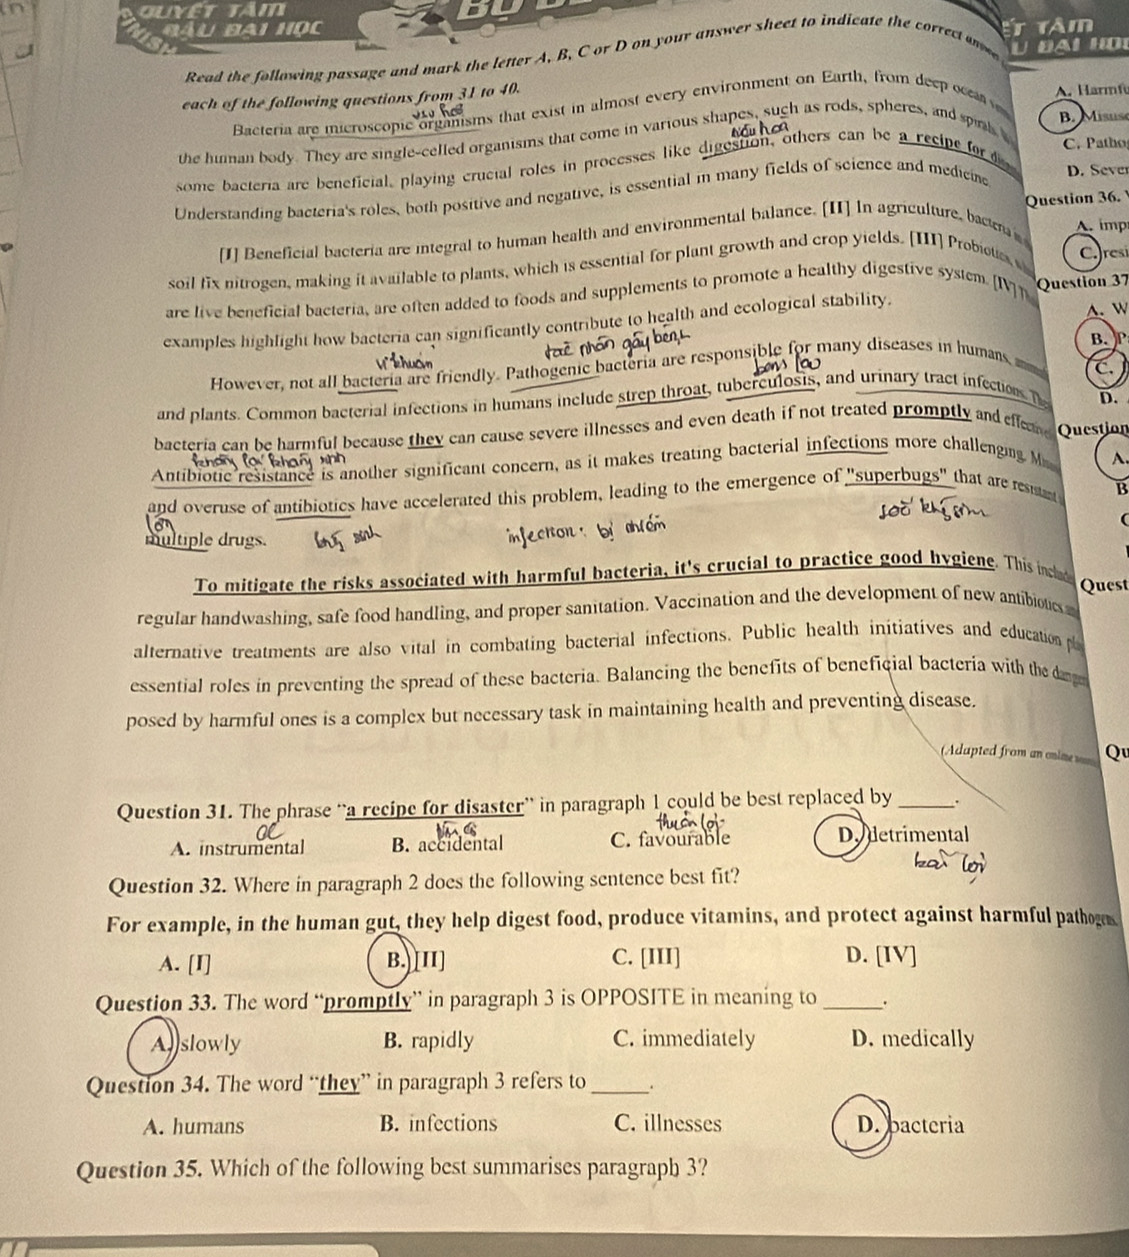 QUYẾT TÂM
ĐẬU ĐẠI HỌC
Read the following passage and mark the letter A, B, C or D on your answer sheet to indicate the correct
each of the following questions from 31 to 40.
Bacteria are microscopic organisms that exist in almost every environment on Earth, from deep ocean
the human body. They are single-celled organisms that come in various shapes, such as rods, spheres, and spirals.
some bacteria are beneficial, playing crucial roles in processes like digestion, others can be a recipe for
Understanding bacteria's roles, both positive and negative, is essential in many fields of science and medicine
[I] Beneficial bacteria are integral to human health and environmental balance. [II] In agriculture, bacteria
soil fix nitrogen, making it available to plants, which is essential for plant growth and crop yields. [III] Probiotics,
are live beneficial bacteria, are often added to foods and supplements to promote a healthy digestive system. [IV]
examples highlight how bacteria can significantly contribute to health and ecological stability.
vi khuẩn tác nhân gây bệnh
However, not all bacteria are friendly. Pathogenic bacteria are responsible for many diseases in humans,
and plants. Common bacterial infections in humans include strep throat, tuberculosis, and urinary tract infections.
bacteria can be harmful because they can cause severe illnesses and even death if not treated promptly and
Antibiotic resistance is another significant concern, as it makes treating bacterial infections more challenging.
and overuse of antibiotics have accelerated this problem, leading to the emergence of "superbugs" that are resistant
multiple drugs.
infection: bị nhiễm
To mitigate the risks associated with harmful bacteria, it's crucial to practice good hygiene. This
regular handwashing, safe food handling, and proper sanitation. Vaccination and the development of new antibiotics
alternative treatments are also vital in combating bacterial infections. Public health initiatives and education
essential roles in preventing the spread of these bacteria. Balancing the benefits of beneficial bacteria with the
posed by harmful ones is a complex but necessary task in maintaining health and preventing disease.
(Adapted from an online
Question 31. The phrase “a recipe for disaster” in paragraph 1 could be best replaced by ______.
thuận lợi
A. instrumental B. accidental C. favourable D. detrimental
Question 32. Where in paragraph 2 does the following sentence best fit?
For example, in the human gut, they help digest food, produce vitamins, and protect against harmful pathogens.
A. [I] B. [II] C. [III] D. [IV]
Question 33. The word “promptly” in paragraph 3 is OPPOSITE in meaning to ______.
A. slowly B. rapidly C. immediately D. medically
Question 34. The word “they” in paragraph 3 refers to ______.
A. humans B. infections C. illnesses D. bacteria
Question 35. Which of the following best summarises paragraph 3?
ẾT TÂM
U ĐẠI HỌC
A. Harmfu
B. Misuse
C. Patho
D. Sever
Question 36.
A. imp
C. resi
Question 37
A. W
B. P
C.
D.
Question
A.
B
Quest
Qu